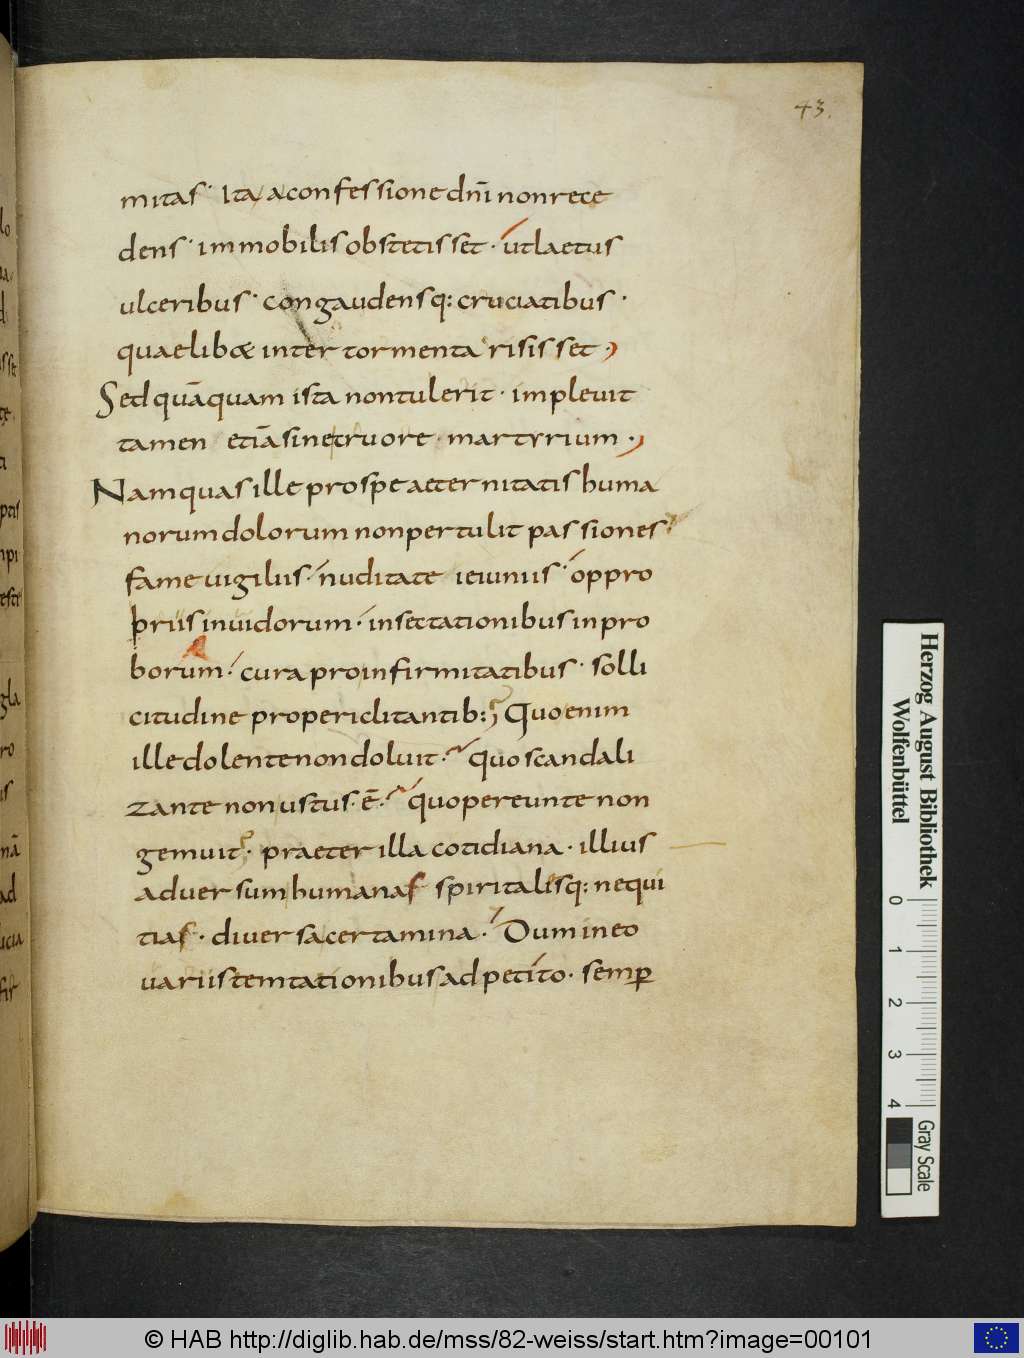 43.
mitas · Ita a confessione dn̄i non rece
dens · immobilis obstetisset · ut laetus
ulceribus · congaudensq: cruciatibus ·
quaelibæ inter tormenta risisset ·
Sed quāquam ista non tulerit · implevit
tamen etiā sine cruore · martyrium ·
Nam quas ille pro spe aeternitatis huma
norum dolorum non pertulit passiones
fame vigiliis · nuditate ieiuniis · oppro
priis invidorum · insectationibus inpro
borum · cura pro infirmitatibus · solli
citudine pro periclitantib:; Quo enim
ille dolente non doluit · quo scandali
zante non ustus · ē · quo pereunte non
gemuit · praeter illa cotidiana · illius
adversum humanas spiritalisq: nequi
tias · diversa certamina · Dum in eo
variis temtationibus adpetito · semp̲
Herzog August Bibliothek
Wolfenbüttel
0 1 2 3 4
Gray Scale
© HAB http://diglib.hab.de/mss/82-weiss/start.htm?image=00101